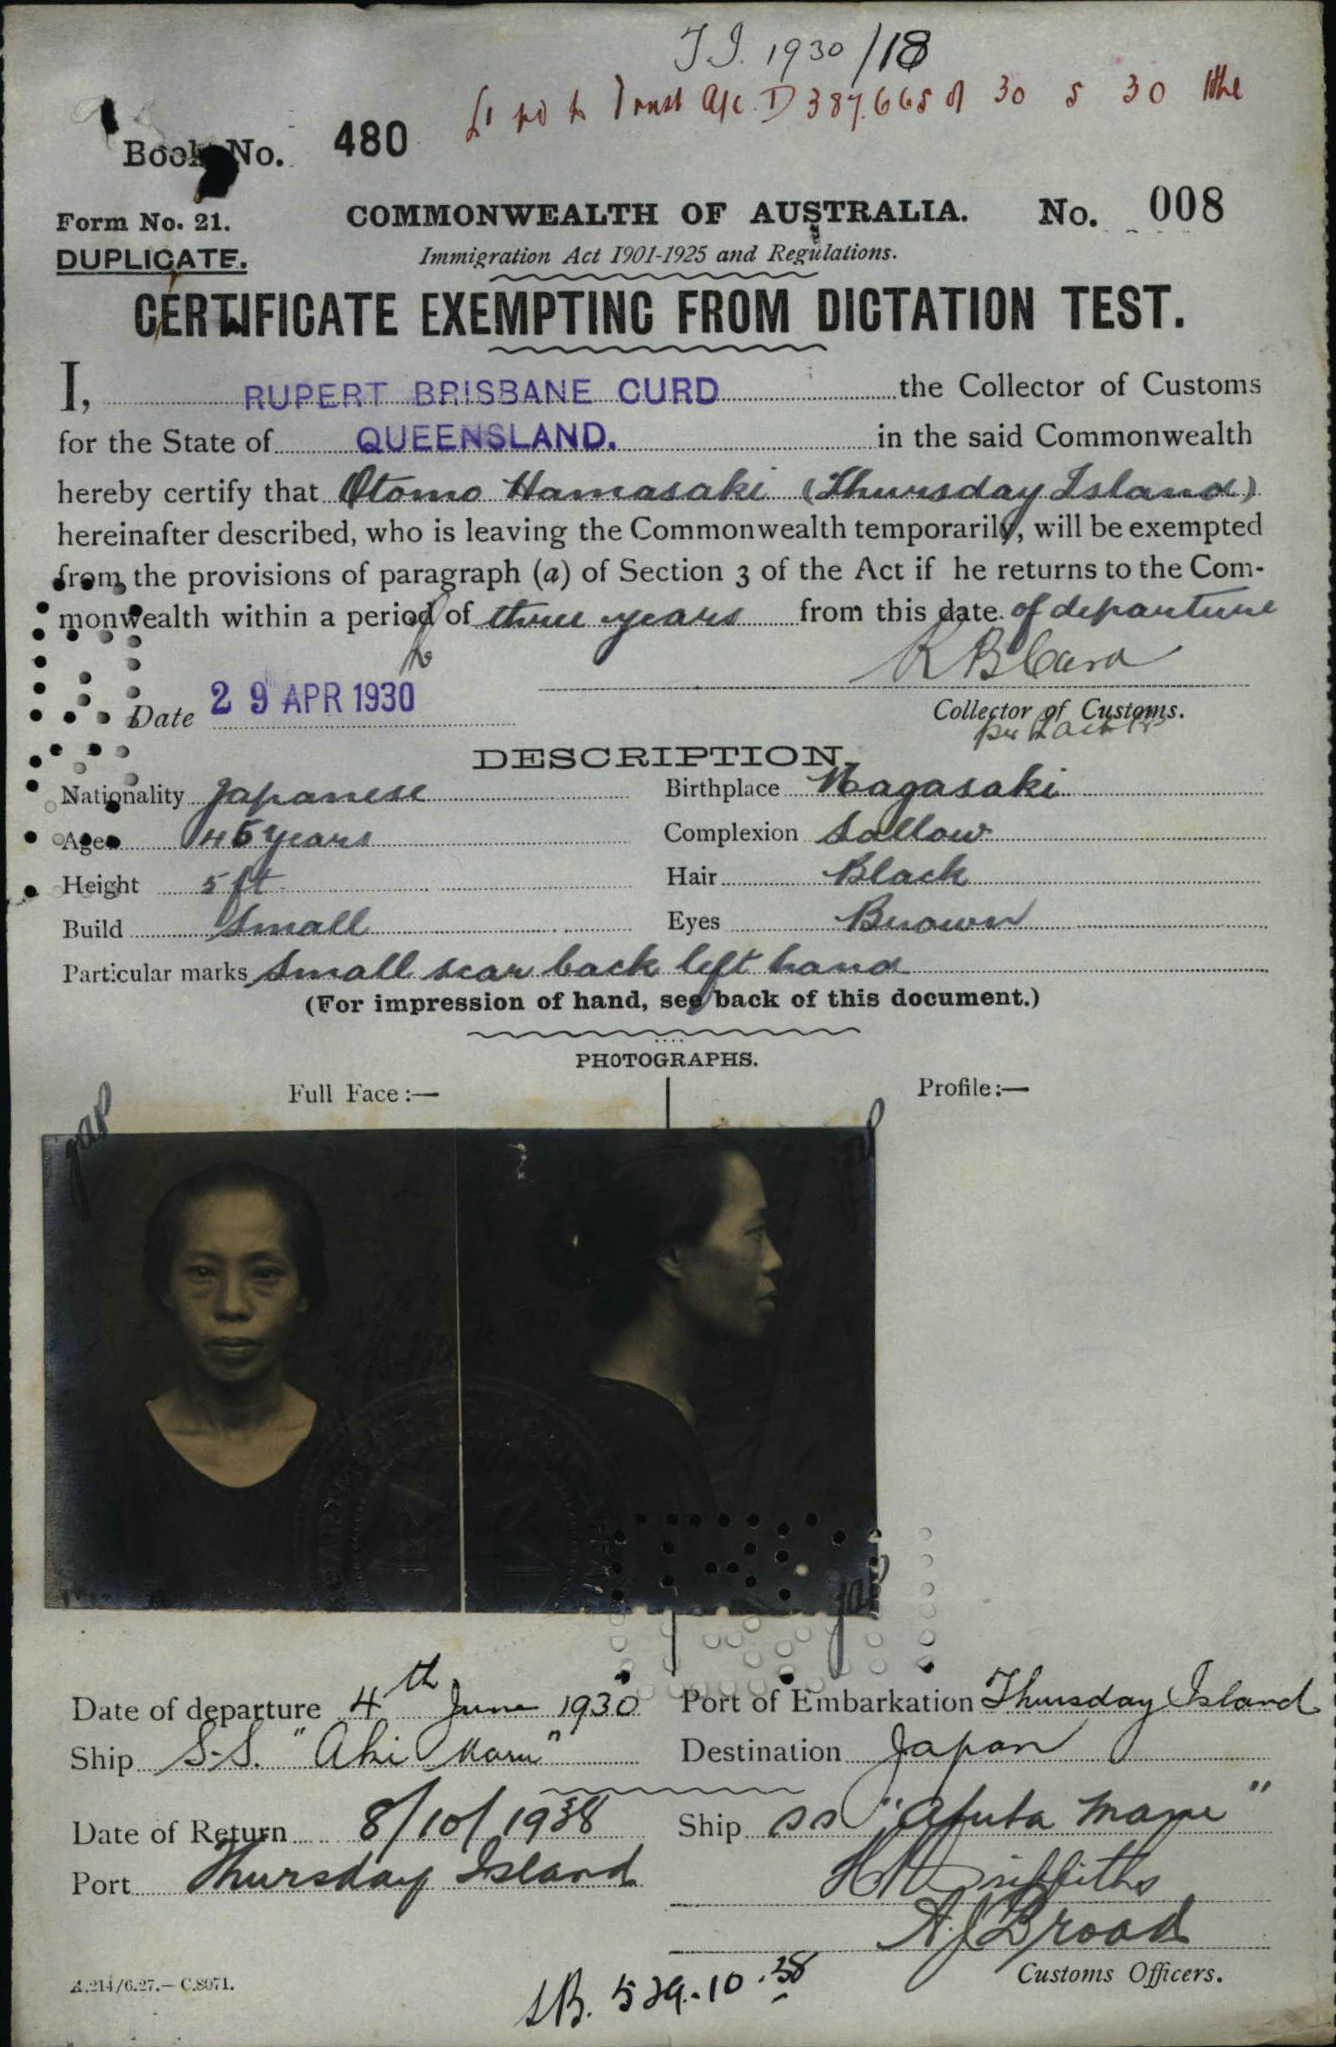 T.I. 1930/18
£1 pd to Trust A/c D 387665 of 30 5 30
Book No. 480
Form No. 21.
COMMONWEALTH OF AUSTRALIA. No. 008
DUPLICATE.
Immigration Act 1901-1925 and Regulations.
CERTIFICATE EXEMPTING FROM DICTATION TEST.
I, RUPERT BRISBANE CURD the Collector of Customs
for the State of QUEENSLAND. in the said Commonwealth
hereby certify that Otomo Hamasaki (Thursday Island)
hereinafter described, who is leaving the Commonwealth temporarily, will be exempted
from the provisions of paragraph (a) of Section 3 of the Act if he returns to the Com-
monwealth within a period of three years from this date of departure
R B Curd
Date 29 APR 1930
Collector of Customs.
DESCRIPTION.
Nationality Japanese Birthplace Nagasaki
Age 45 years Complexion Sallow
Height 5 ft Hair Black
Build Small Eyes Brown
Particular marks Small scar back left hand
(For impression of hand, see back of this document.)
PHOTOGRAPHS.
Full Face:— Profile:—
Date of departure 4th June 1930 Port of Embarkation Thursday Island
Ship S.S. "Aki Maru" Destination Japan
Date of Return 8/10/1938 Ship SS "Atuta Maru"
Port Thursday Island
Griffiths
A J Broad
Customs Officers.
A.214/6.27.—C.8071.